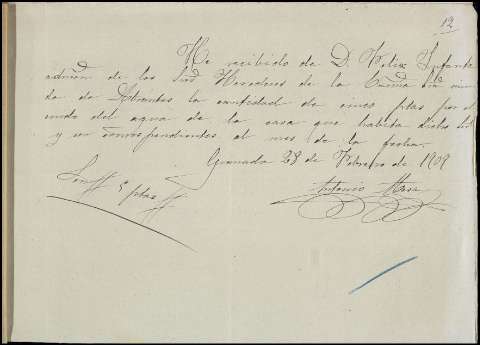 12
He recibido de D. Felix Infante
admōn de los Srs Herederos de la Exma Sra
da de Abrantes la cantidad de cinco ptas por el
del agua de la casa que habita dicho
y son correspondientes al mes de la fecha.
Granada 28 de Febrero de 1909
Son 5 ptas
Antonio